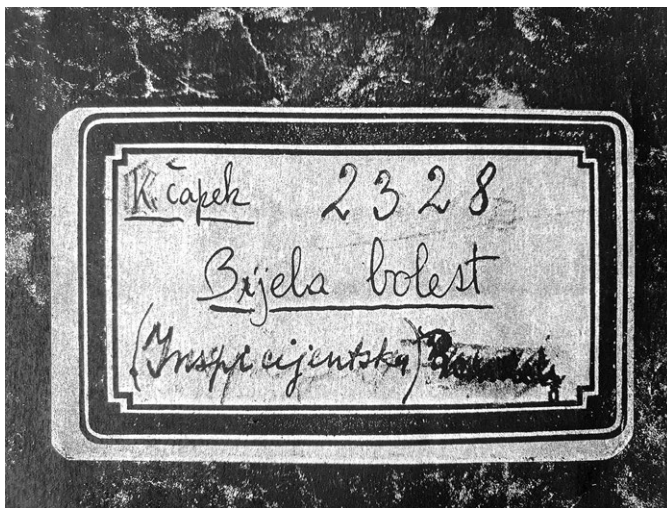 K. Čapek 2328
Bijela bolest
(Inspicijentska)